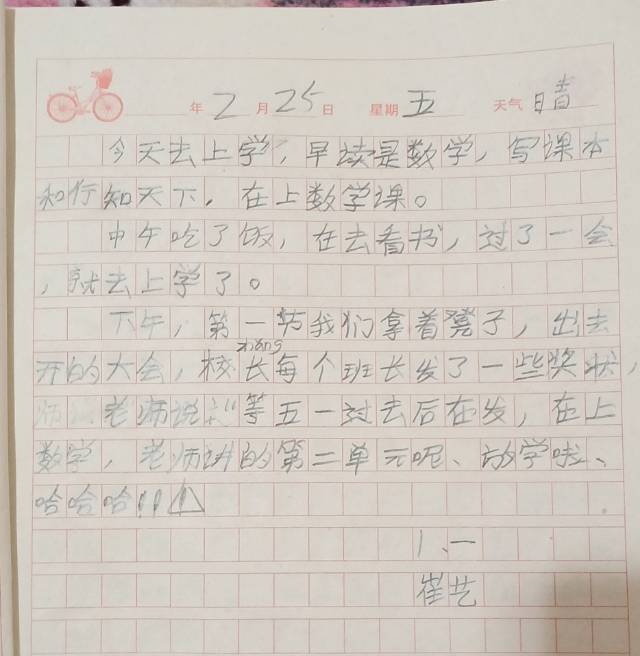 年 2 月 25 日 星期 五 天气 晴
今天去上学，早读是数学，写课本
和行知天下，在上数学课。
中午吃了饭，在去看书，过了一会
，就去上学了。
下午，第一节我们拿着凳子，出去
开的大会，校长每个班长发了一些奖状，
zhang
老师说：“等五一过去后在发，在上
数学，老师讲的第二单元呢、放学啦、
哈哈哈！！
1、一
崔艺